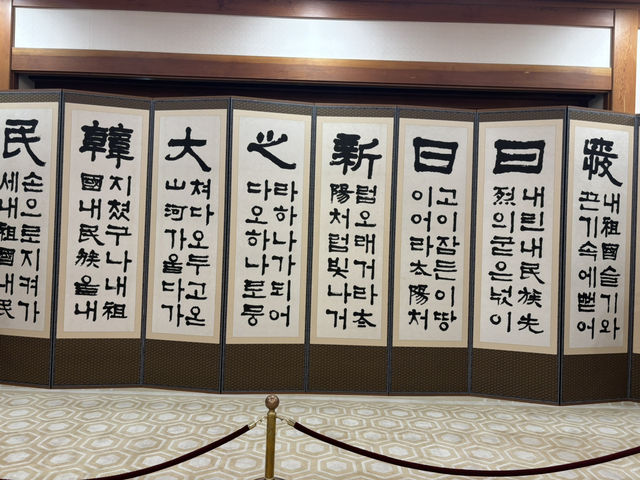 내祖國슬기와
끈기속에뻗어
日
내린내民族先
烈의굳은넋이
日
고이잠든이땅
이어라太陽처
新
럼오래거라太
陽처럼빛나거
之
라하나가되어
다오하나로뭉
大
쳐다오두고온
山河가울다가
韓
지쳤구나내祖
國내民族을내
民
손으로지켜가
세내祖國내民